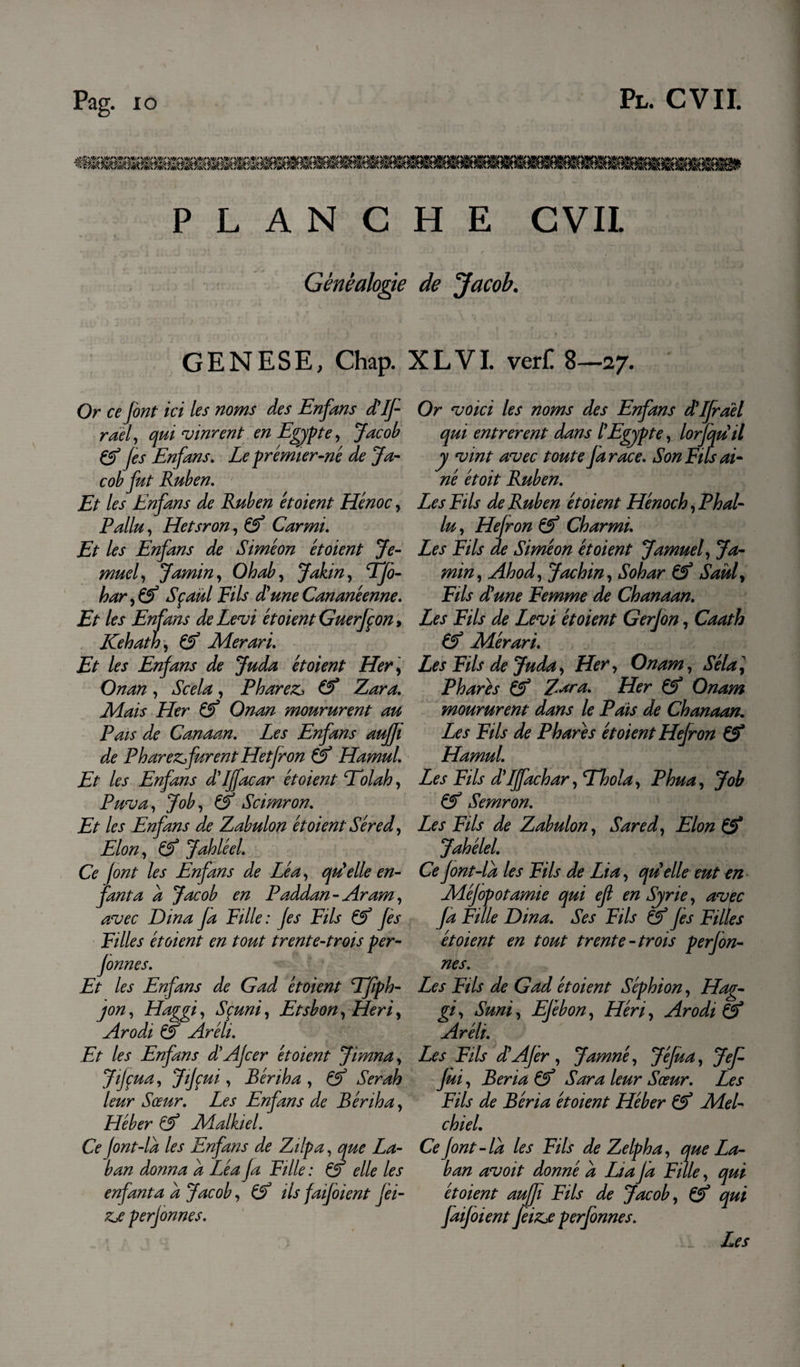 Pag. 10
Pl. CVII.
PLANCHE CVII.
Généalogie de Jacob.
GENESE, Chap. XLVI. verſ. 8—27.
Or ce ſont ici les noms des Enfans d'Iſ-
raël, qui vinrent en Egypte, Jacob
& ſes Enfans. Le prémier-né de Ja-
cob fut Ruben.
Et les Enfans de Ruben étoient Hénoc,
Pallu, Hetsron, & Carmi.
Et les Enfans de Siméon étoient Je-
muel, Jamin, Ohab, Jakin, Tſo-
har, & Sçaül Fils d'une Cananéenne.
Et les Enfans de Levi étoient Guerſçon,
Kehath, & Merari.
Et les Enfans de Juda étoient Her,
Onan, Scela, Pharez, & Zara.
Mais Her & Onan moururent au
Païs de Canaan. Les Enfans auſſi
de Pharez furent Hetſron & Hamul.
Et les Enfans d'Iſſacar étoient Tolah,
Puva, Job, & Scimron.
Et les Enfans de Zabulon étoient Séred,
Elon, & Jahléel.
Ce ſont les Enfans de Léa, qu'elle en-
fanta à Jacob en Paddan-Aram,
avec Dina ſa Fille: ſes Fils & ſes
Filles étoient en tout trente-trois per-
ſonnes.
Et les Enfans de Gad étoient Tſiph-
jon, Haggi, Sçuni, Etsbon, Heri,
Arodi & Aréli.
Et les Enfans d'Aſcer étoient Jimna,
Jiſçua, Jiſçui, Bériha, & Serah
leur Sœur. Les Enfans de Bériha,
Héber & Malkiel.
Ce ſont-là les Enfans de Zilpa, que La-
ban donna à Léa ſa Fille: & elle les
enfanta à Jacob, & ils faiſoient ſei-
ze perſonnes.
Or voici les noms des Enfans d'Iſraël
qui entrerent dans l'Egypte, lorſqu'il
y vint avec toute ſa race. Son Fils ai-
né étoit Ruben.
Les Fils de Ruben étoient Hénoch, Phal-
lu, Heſron & Charmi.
Les Fils de Siméon étoient Jamuel, Ja-
min, Ahod, Jachin, Sohar & Saül,
Fils d'une Femme de Chanaan.
Les Fils de Levi étoient Gerſon, Caath
& Mérari.
Les Fils de Juda, Her, Onam, Séla,
Pharès & Zara. Her & Onam
moururent dans le Païs de Chanaan.
Les Fils de Pharès étoient Heſron &
Hamul.
Les Fils d'Iſſachar, Thola, Phua, Job
& Semron.
Les Fils de Zabulon, Sared, Elon &
Jahélel.
Ce ſont-là les Fils de Lia, qu'elle eut en
Méſopotamie qui eſt en Syrie, avec
ſa Fille Dina. Ses Fils & ſes Filles
étoient en tout trente-trois perſon-
nes.
Les Fils de Gad étoient Séphion, Hag-
gi, Suni, Eſébon, Héri, Arodi &
Aréli.
Les Fils d'Aſer, Jamné, Jéſua, Jeſ-
ſui, Beria & Sara leur Sœur. Les
Fils de Béria étoient Héber & Mel-
chiel.
Ce ſont-là les Fils de Zelpha, que La-
ban avoit donné à Lia ſa Fille, qui
étoient auſſi Fils de Jacob, & qui
faiſoient ſeize perſonnes.
Les